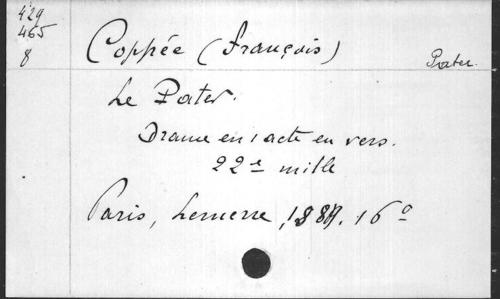 429
465
8
Coppée (François)
Pater.
Le Pater.
Drame en 1 acte en vers.
22e mille
Paris, Lemerre, 1889. 16o